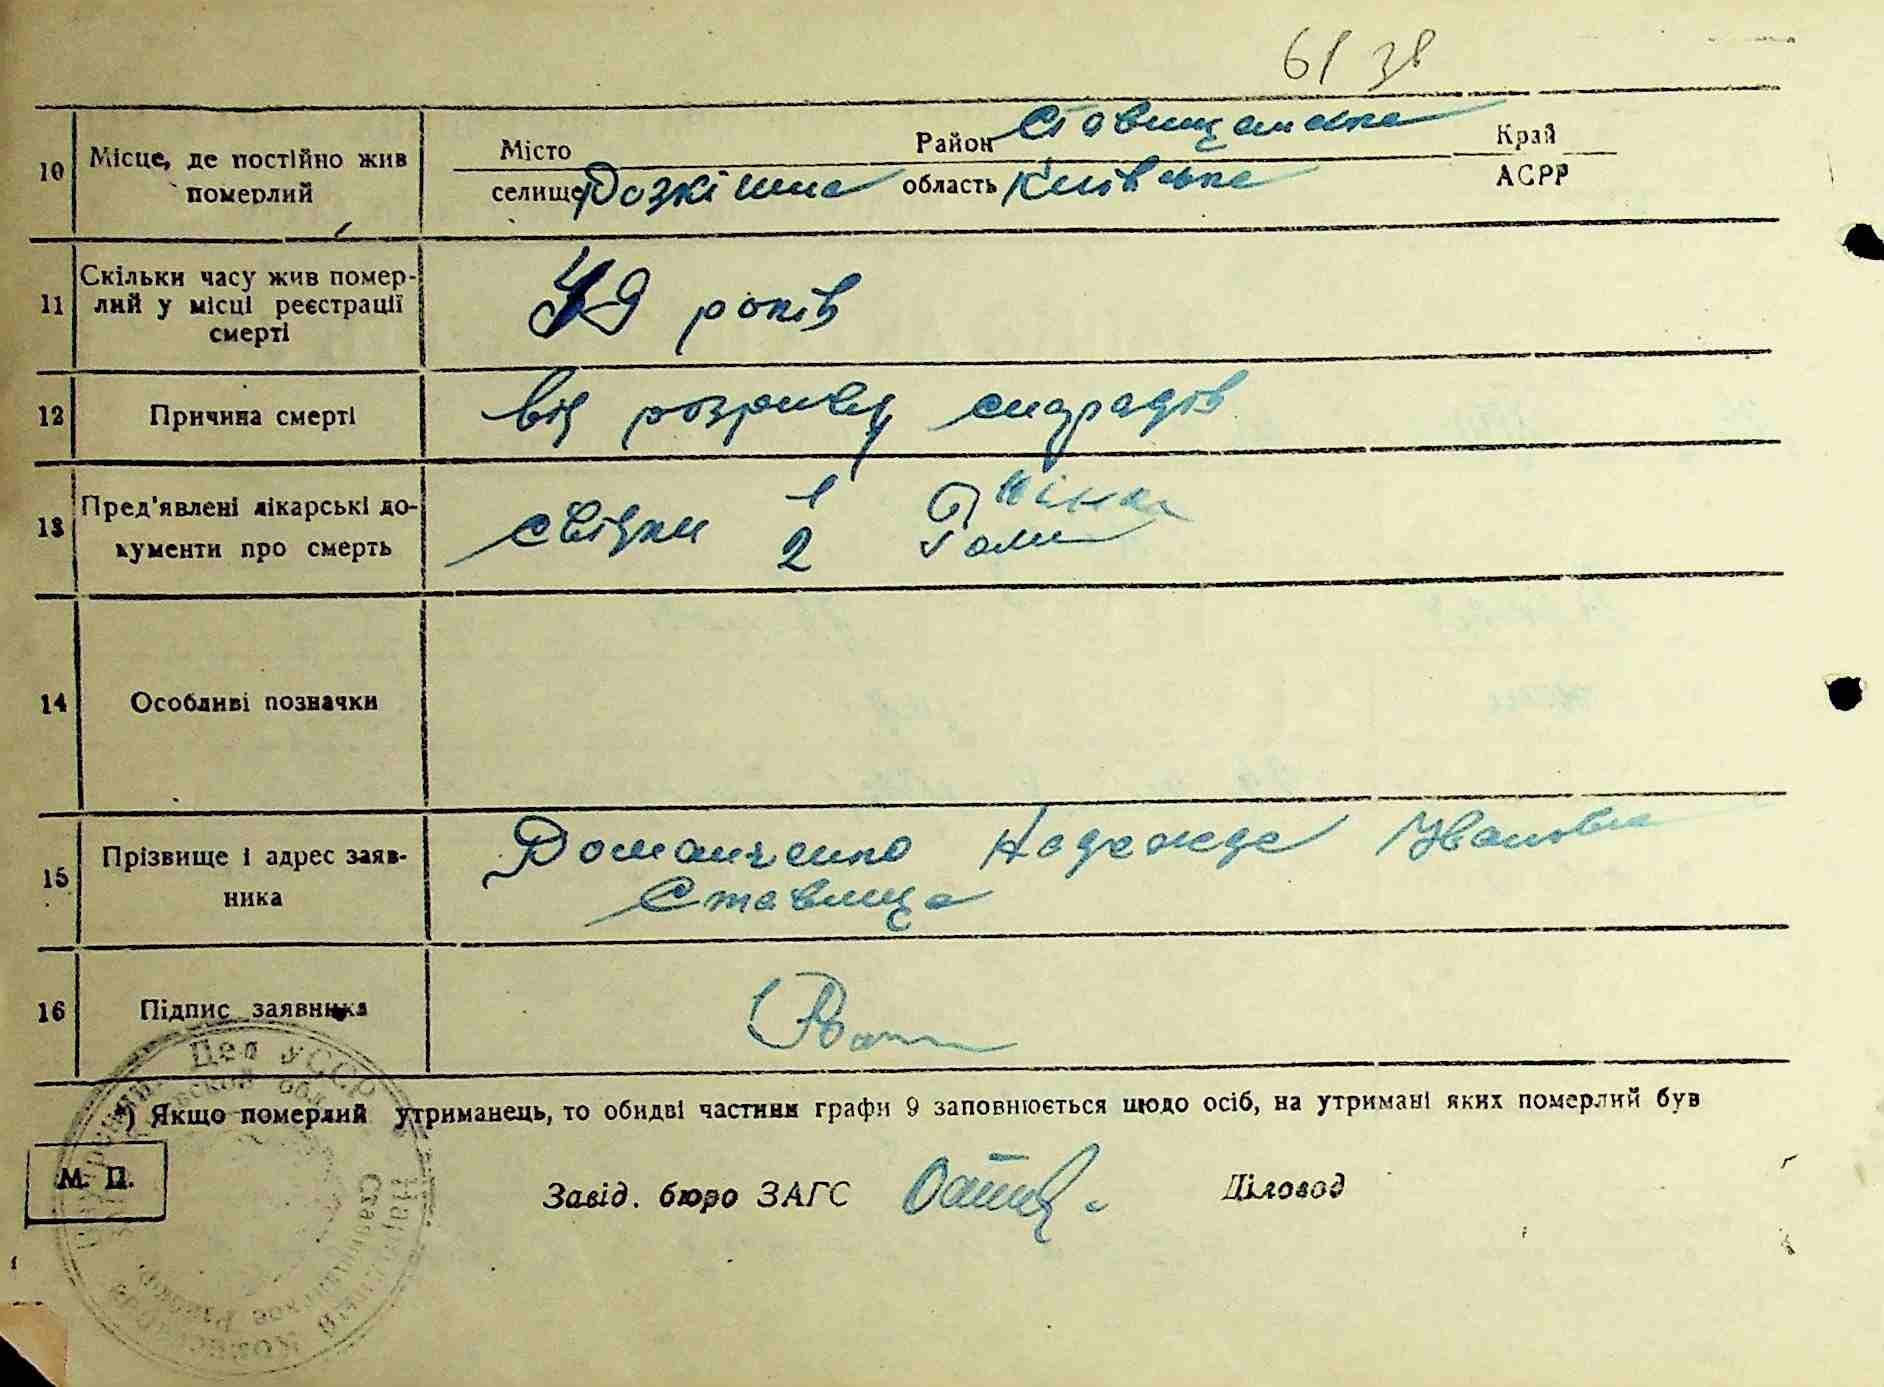 61 38
10 Місце, де постійно жив померлий Місто селище Розкішна Район Ставищанська область Київська Край АСРР
11 Скільки часу жив помер-
лий у місці реєстрації 49 років
смерті
12 Причина смерті від розриву снарядів
13 Пред'явлені лікарські до-
кументи про смерть свідки 1 2
14 Особливі позначки
15 Прізвище і адрес заяв- Доманченко Надежда Ивановна
ника Ставища
16 Підпис заявника
*) Якщо померлий утриманець, то обидві частини графи 9 заповнюється щодо осіб, на утримані яких померлий був
М. П.
Завід. бюро ЗАГС Діловод